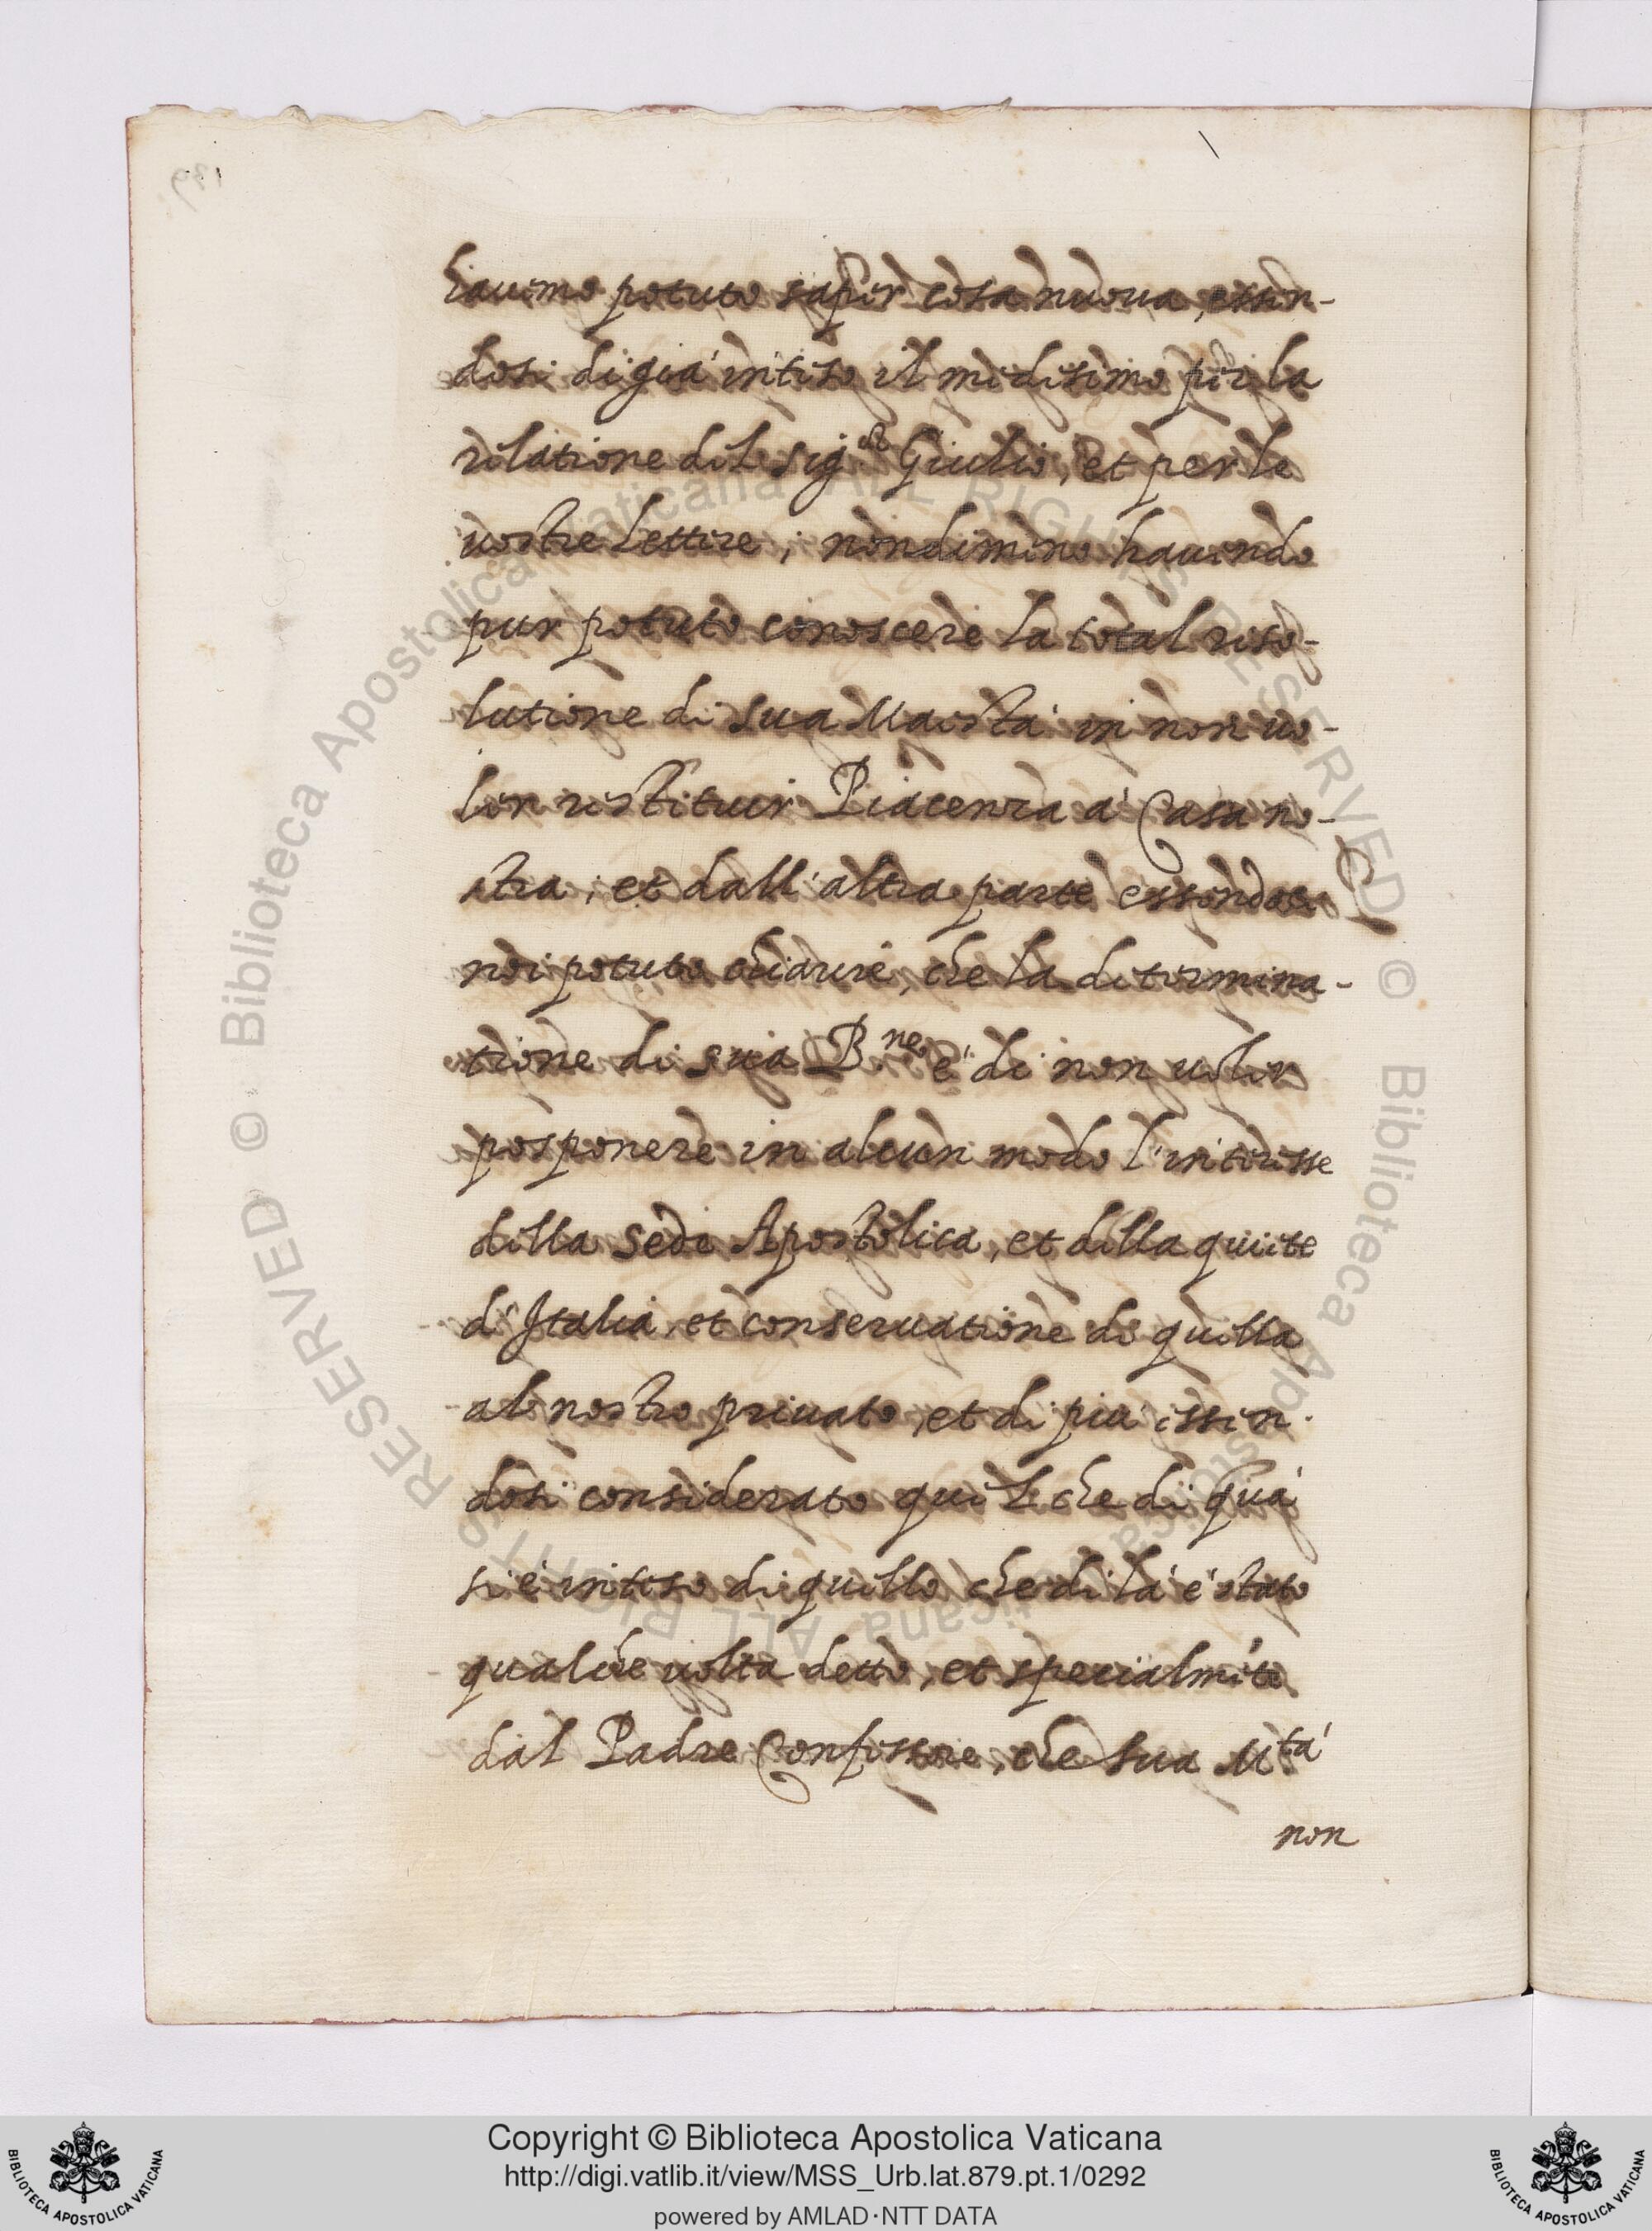 hauemo potuto saper cosa nuoua, essen-
dosi di già inteso il medesimo per la
relatione del sig.or Giulio, et per le
uostre lettere; nondimeno hauendo
pur potuto conoscere la total riso-
lutione di sua Maestà in non uo-
ler restituir Piacenza à Casa no-
stra; et dall'altra parte essendosi
noi potuto chiarire, che la determina-
tione di sua B.ne è di non uoler
posponere in alcun modo l'interesse
della Sede Apostolica, et della quiete
d'Italia, et conseruatione di quella
al nostro priuato, et di più essen
dosi considerato quel che di quà
si è inteso di quello che di là è stato
qualche uolta detto, et specialmẽte
dal Padre Confessore, che sua M.tà
non
Copyright © Biblioteca Apostolica Vaticana
http://digi.vatlib.it/view/MSS_Urb.lat.879.pt.1/0292
powered by AMLAD·NTT DATA
BIBLIOTECA APOSTOLICA VATICANA
BIBLIOTECA APOSTOLICA VATICANA